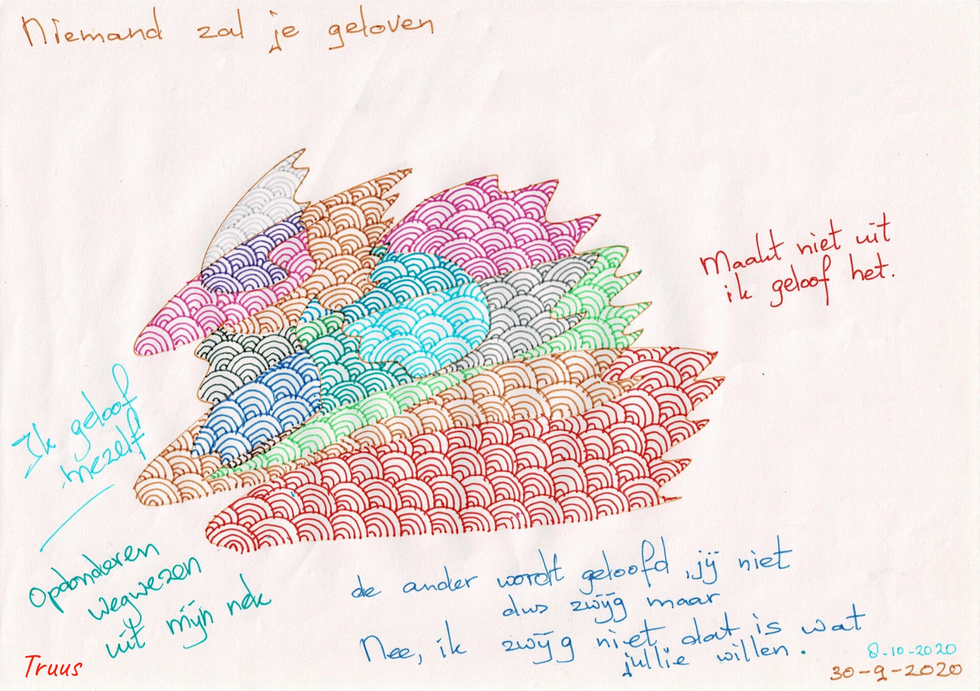 Niemand zal je geloven
Maakt niet uit
ik geloof het.
Ik geloof
mezelf
Opdonderen
wegwezen
uit mijn nek
de ander wordt geloofd, jij niet
dus zwijg maar
Nee, ik zwijg niet dat is wat
jullie willen.
Truus
8-10-2020
30-9-2020